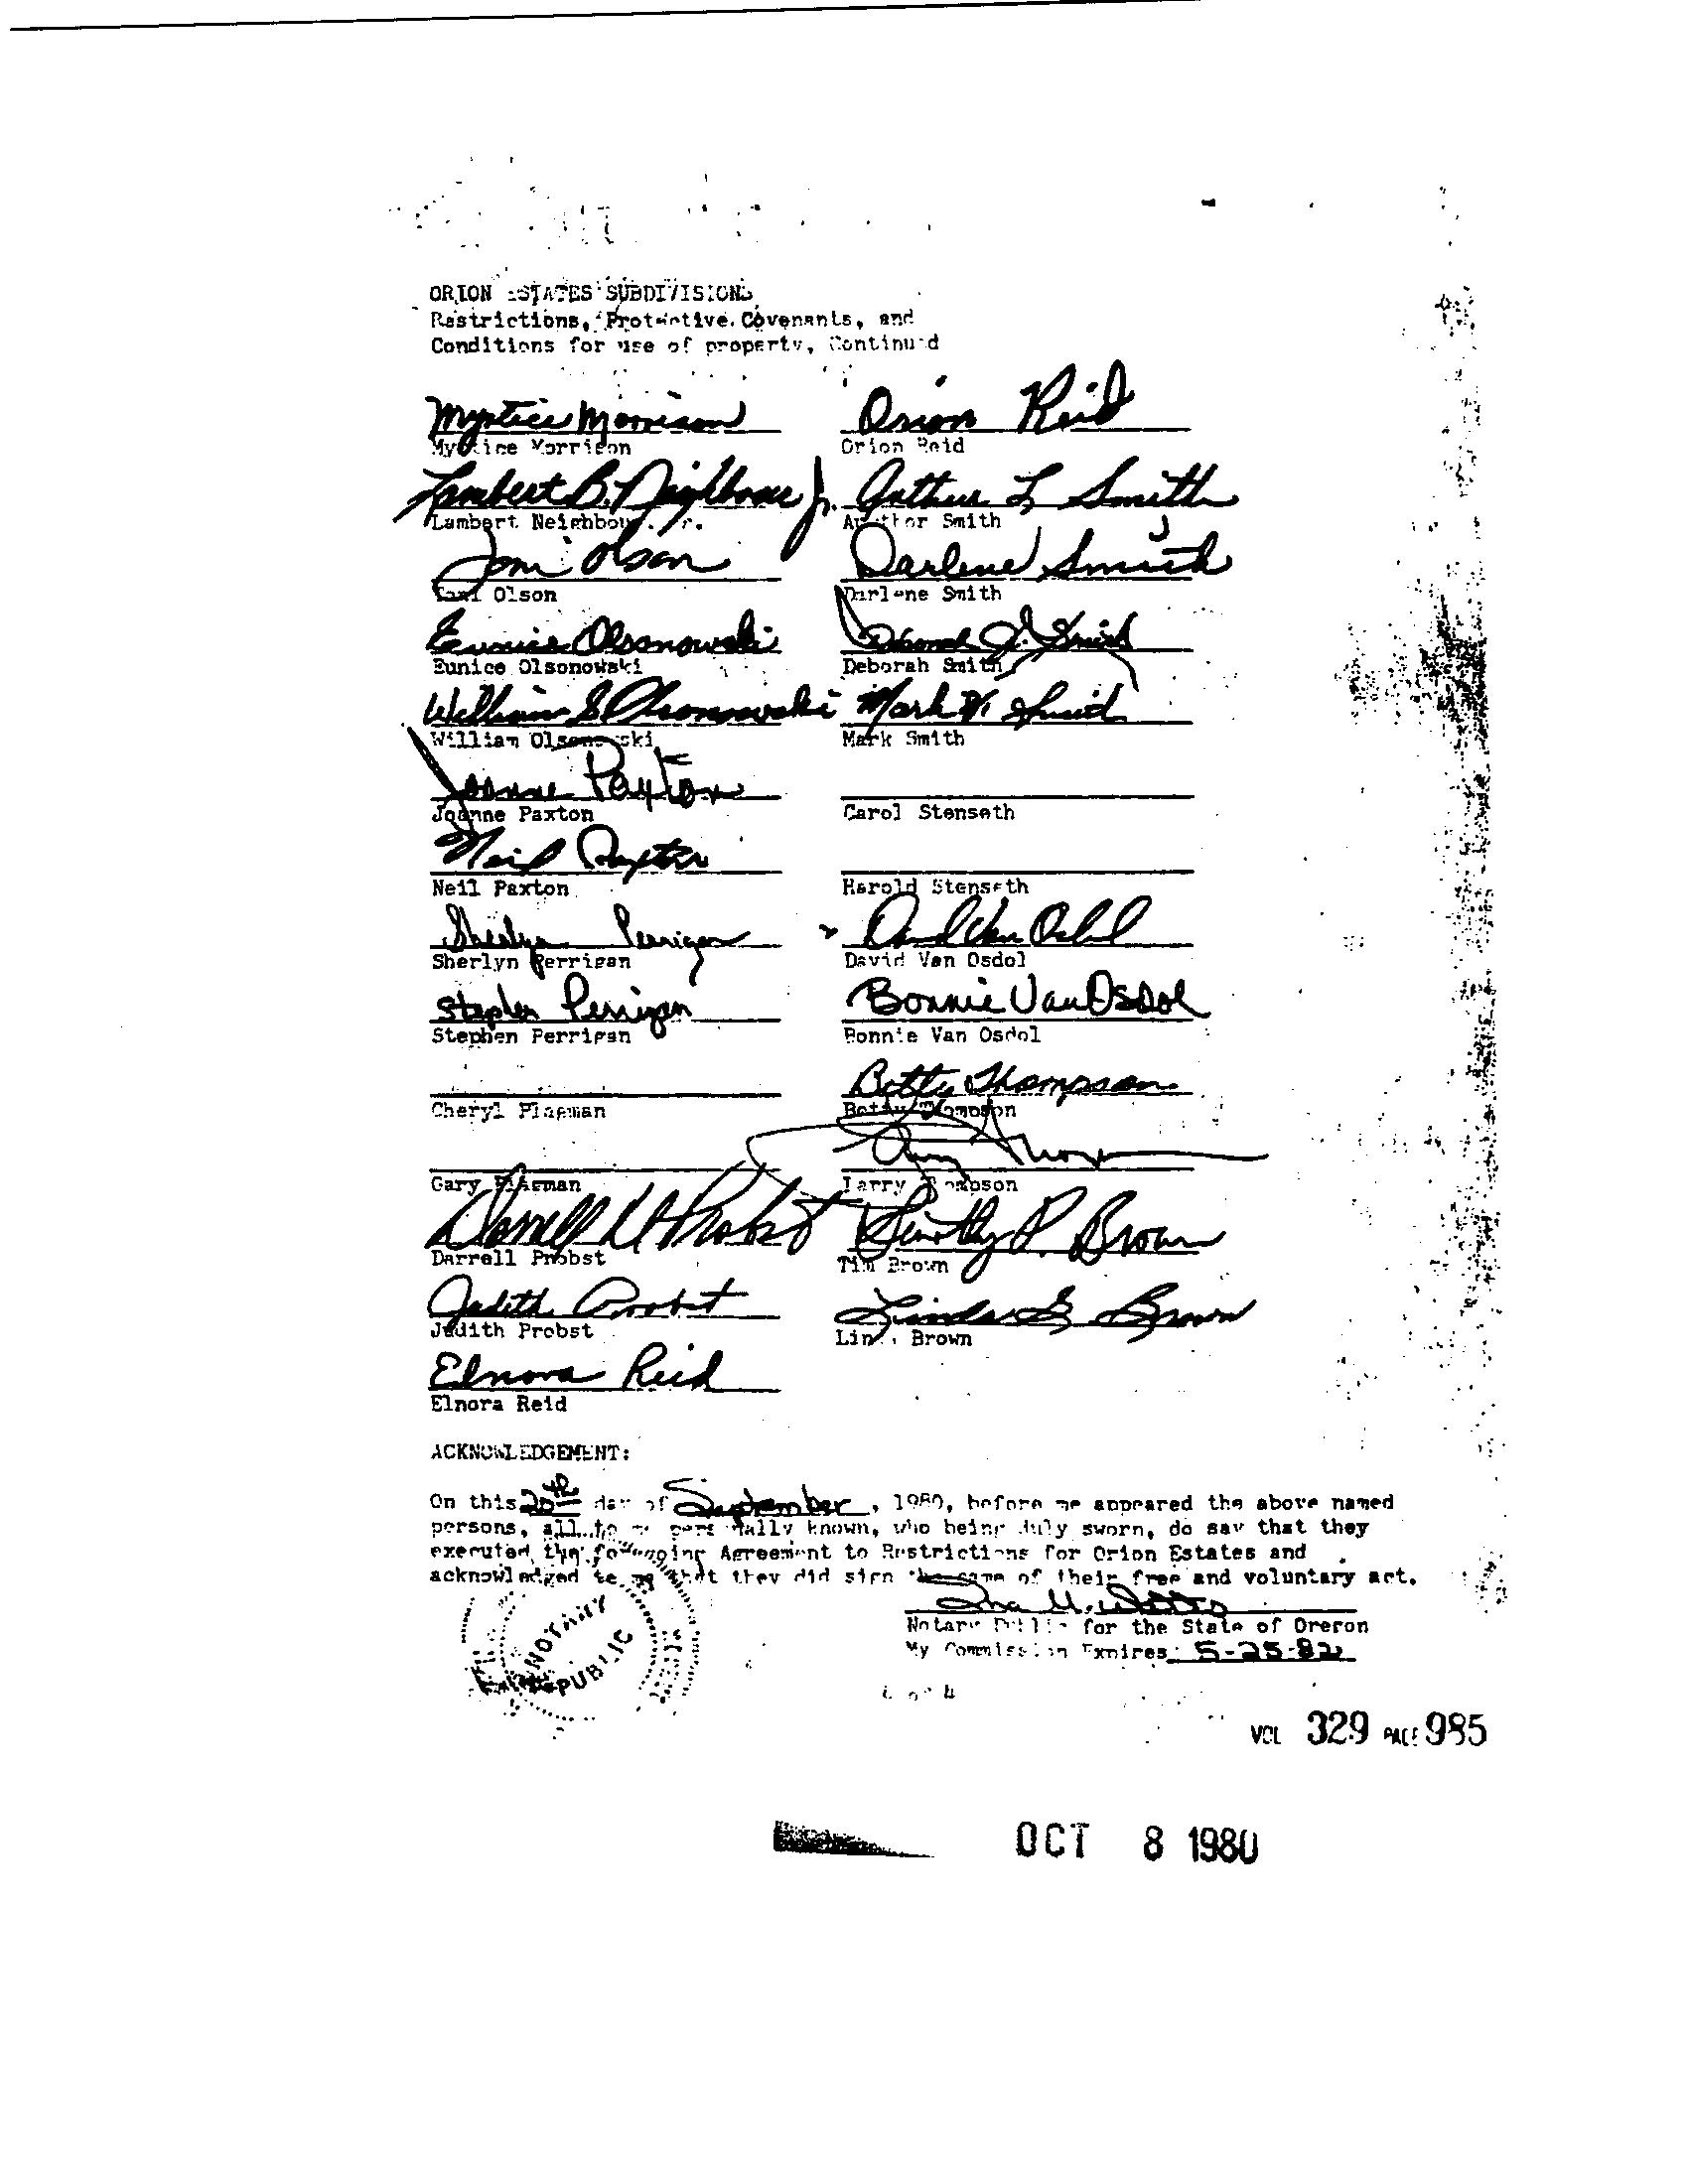 ORION ESTATES SUBDIVISIONS
Restrictions, Protective Covenants, and
Conditions for use of property, Continued
Myrtice Morrison Orion Reid
Myrtice Morrison Orion Reid
Lambert B. Neighbour Jr. Arthur L Smith
Lambert Neighbour, Jr. Smith
Toni Olson Darlene Smith
Toni Olson Darlene Smith
Eunice Olsonowski Deborah J. Smith
Eunice Olsonowski Deborah Smith
William S Olsonowski Mark W. Smith
William Olsonowski Mark Smith
Joanne Paxton
Joanne Paxton Carol Stenseth
Neil Paxton
Neil Paxton Harold Stenseth
Sherlyn Perrigan David Van Osdol
Sherlyn Perrigan David Van Osdol
Stephen Perrigan Bonnie Van Osdol
Stephen Perrigan Bonnie Van Osdol
Betty Thompson
Cheryl Plagman Betty Thompson
Larry
Gary Plagman Larry Thompson
Darrell W Probst Timothy P. Brown
Darrell Probst Tim Brown
Judith Probst Linda G Brown
Judith Probst Linda Brown
Elnora Reid
Elnora Reid
ACKNOWLEDGEMENT:
On this 20th day of September, 1980, before me appeared the above named
persons, all to me personally known, who being duly sworn, do say that they
executed the foregoing Agreement to Restrictions for Orion Estates and
acknowledged to me that they did sign the same of their free and voluntary act.
Notary Public for the State of Oregon
My Commission Expires: 5-25-82
NOTARY
PUBLIC
4 of 4
VOL 329 PAGE 985
OCT 8 1980